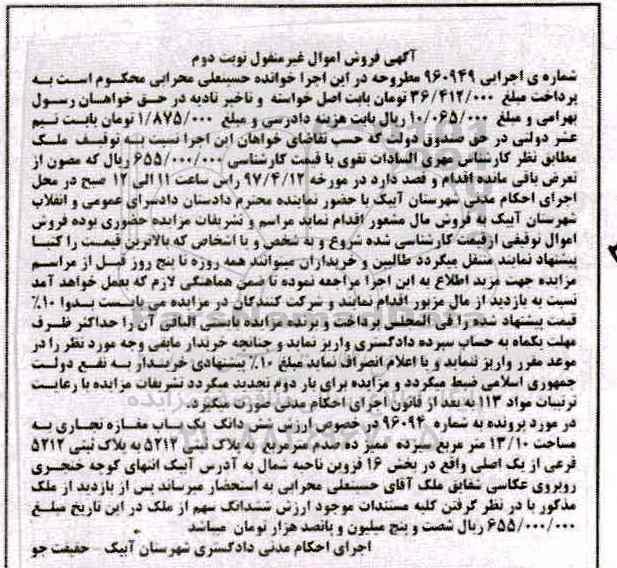 آگهی فروش اموال غیرمنقول نوبت دوم
شماره ی اجرایی ۹۶۰۹۴۹ مطروحه در این اجرا خوانده حسینعلی محرابی محکوم است به
پرداخت مبلغ ۳۶/۴۱۲/۰۰۰ تومان بابت اصل خواسته و تاخیر تادیه در حق خواهان رسول
بهرامی و مبلغ ۱۰/۰۶۵/۰۰۰ ریال بابت هزینه دادرسی و مبلغ ۱/۸۷۵/۰۰۰ تومان بابت نیم
عشر دولتی در حق صندوق دولت که حسب تقاضای خواهان این اجرا نسبت به توقیف ملک
مطابق نظر کارشناس مهری السادات تقوی با قیمت کارشناسی ۶۵۵/۰۰۰/۰۰۰ ریال که مصون از
تعرض باقی مانده اقدام و قصد دارد در مورخه ۹۷/۴/۱۲ راس ساعت ۱۱ الی ۱۲ صبح در محل
اجرای احکام مدنی شهرستان آبیک با حضور نماینده محترم دادستان دادسرای عمومی و انقلاب
شهرستان آبیک به فروش مال مشعور اقدام نماید مراسم و تشریفات مزایده حضوری بوده فروش
اموال توقیفی ازقیمت کارشناسی شده شروع و به شخص و یا اشخاص که بالاترین قیمت را کتبا
پیشنهاد نمایند منتقل میگردد طالبین و خریداران میتوانند همه روزه تا پنج روز قبل از مراسم
مزایده جهت مزید اطلاع به این اجرا مراجعه نموده تا ضمن هماهنگی لازم که بعمل خواهد آمد
نسبت به بازدید از مال مزبور اقدام نمایند و شرکت کنندگان در مزایده می بایست بدوا ۱۰٪
قیمت پیشنهاد شده را فی المجلس پرداخت و برنده مزایده بایستی الباقی آن را حداکثر ظرف
مهلت یکماه به حساب سپرده دادگستری واریز نماید و چنانچه خریدار مابقی وجه مورد نظر را در
موعد مقرر واریز ننماید و یا اعلام انصراف نماید مبلغ ۱۰٪ پیشنهادی خریدار به نفع دولت
جمهوری اسلامی ضبط میگردد و مزایده برای بار دوم تجدید میگردد تشریفات مزایده با رعایت
ترتیبات مواد ۱۱۳ به بعد از قانون اجرای احکام مدنی صورت میگیرد.
در مورد پرونده به شماره ۹۶۰۹۴ در خصوص ارزش شش دانگ یک باب مغازه تجاری به
مساحت ۱۳/۱۰ متر مربع سیزده ممیز ده صدم مترمربع به پلاک ثبتی ۵۲۱۲ به پلاک ثبتی ۵۲۱۲
فرعی از یک اصلی واقع در بخش ۱۶ قزوین ناحیه شمال به آدرس آبیک انتهای کوچه خنجری
روبروی عکاسی شقایق ملک آقای حسینعلی محرابی به استحضار میرساند پس از بازدید از ملک
مذکور با در نظر گرفتن کلیه مستندات موجود ارزش ششدانگ سهم از ملک در این تاریخ مبلغ
۶۵۵/۰۰۰/۰۰۰ ریال شصت و پنج میلیون و پانصد هزار تومان میباشد
اجرای احکام مدنی دادگستری شهرستان آبیک - حقیقت جو